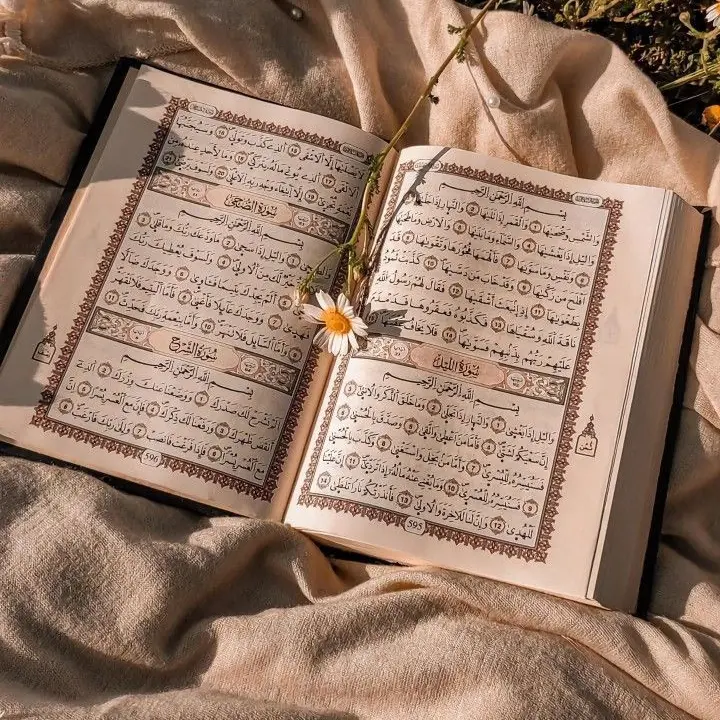 بِسْمِ اللَّهِ الرَّحْمَٰنِ الرَّحِيمِ
وَالشَّمْسِ وَضُحَىٰهَا ١ وَالْقَمَرِ إِذَا تَلَىٰهَا ٢ وَالنَّهَارِ إِذَا جَلَّىٰهَا ٣
وَالَّيْلِ إِذَا يَغْشَىٰهَا ٤ وَالسَّمَاءِ وَمَا بَنَىٰهَا ٥ وَالْأَرْضِ وَمَا طَحَىٰهَا ٦
وَنَفْسٍ وَمَا سَوَّىٰهَا ٧ فَأَلْهَمَهَا فُجُورَهَا وَتَقْوَىٰهَا ٨ قَدْ
أَفْلَحَ مَن زَكَّىٰهَا ٩ وَقَدْ خَابَ مَن دَسَّىٰهَا ١٠ كَذَّبَتْ ثَمُودُ
بِطَغْوَىٰهَا ١١ إِذِ انبَعَثَ أَشْقَىٰهَا ١٢ فَقَالَ لَهُمْ رَسُولُ اللَّهِ
نَاقَةَ اللَّهِ وَسُقْيَٰهَا ١٣ فَكَذَّبُوهُ فَعَقَرُوهَا فَدَمْدَمَ
عَلَيْهِمْ رَبُّهُم بِذَنبِهِمْ فَسَوَّىٰهَا ١٤ يَخَافُ
سُورَةُ اللَّيْلِ
بِسْمِ اللَّهِ الرَّحْمَٰنِ الرَّحِيمِ
وَالَّيْلِ إِذَا يَغْشَىٰ ١ وَالنَّهَارِ إِذَا تَجَلَّىٰ ٢ وَمَا خَلَقَ الذَّكَرَ وَالْأُنثَىٰ ٣
إِنَّ سَعْيَكُمْ لَشَتَّىٰ ٤ فَأَمَّا مَنْ أَعْطَىٰ وَاتَّقَىٰ ٥ وَصَدَّقَ بِالْحُسْنَىٰ ٦
فَسَنُيَسِّرُهُ لِلْيُسْرَىٰ ٧ وَأَمَّا مَن بَخِلَ وَاسْتَغْنَىٰ ٨ وَكَذَّبَ بِالْحُسْنَىٰ ٩
فَسَنُيَسِّرُهُ لِلْعُسْرَىٰ ١٠ وَمَا يُغْنِي عَنْهُ مَالُهُ إِذَا تَرَدَّىٰ ١١ إِنَّ عَلَيْنَا
لَلْهُدَىٰ ١٢ وَإِنَّ لَنَا لَلْآخِرَةَ وَالْأُولَىٰ ١٣ فَأَنذَرْتُكُمْ نَارًا تَلَظَّىٰ ١٤
595
لَا يَصْلَىٰهَا إِلَّا الْأَشْقَى ١٥ الَّذِي كَذَّبَ وَتَوَلَّىٰ ١٦ وَسَيُجَنَّبُهَا
الْأَتْقَى ١٧ الَّذِي يُؤْتِي مَالَهُ يَتَزَكَّىٰ ١٨ وَمَا لِأَحَدٍ عِندَهُ مِن
نِّعْمَةٍ تُجْزَىٰ ١٩ إِلَّا ابْتِغَاءَ وَجْهِ رَبِّهِ الْأَعْلَىٰ ٢٠ وَلَسَوْفَ يَرْضَىٰ ٢١
سُورَةُ الضُّحَىٰ
بِسْمِ اللَّهِ الرَّحْمَٰنِ الرَّحِيمِ
وَالضُّحَىٰ ١ وَالَّيْلِ إِذَا سَجَىٰ ٢ مَا وَدَّعَكَ رَبُّكَ وَمَا قَلَىٰ ٣
خَيْرٌ لَّكَ مِنَ الْأُولَىٰ ٤ وَلَسَوْفَ يُعْطِيكَ رَبُّكَ
فَتَرْضَىٰ ٥ أَلَمْ يَجِدْكَ يَتِيمًا فَآوَىٰ ٦ وَوَجَدَكَ ضَالًّا
فَهَدَىٰ ٧ وَوَجَدَكَ عَائِلًا فَأَغْنَىٰ ٨ فَأَمَّا الْيَتِيمَ فَلَا تَقْهَرْ
٩ وَأَمَّا السَّائِلَ فَلَا تَنْهَرْ ١٠ وَأَمَّا بِنِعْمَةِ رَبِّكَ فَحَدِّثْ ١١
سُورَةُ الشَّرْحِ
بِسْمِ اللَّهِ الرَّحْمَٰنِ الرَّحِيمِ
أَلَمْ نَشْرَحْ لَكَ صَدْرَكَ ١ وَوَضَعْنَا عَنكَ وِزْرَكَ ٢ الَّذِي
أَنقَضَ ظَهْرَكَ ٣ وَرَفَعْنَا لَكَ ذِكْرَكَ ٤ فَإِنَّ مَعَ الْعُسْرِ يُسْرًا ٥ إِنَّ
مَعَ الْعُسْرِ يُسْرًا ٦ فَإِذَا فَرَغْتَ فَانصَبْ ٧ وَإِلَىٰ رَبِّكَ فَارْغَب ٨
596